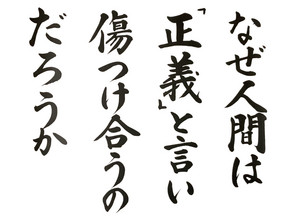 なぜ人間は
「正義」と言い
傷つけ合うの
だろうか